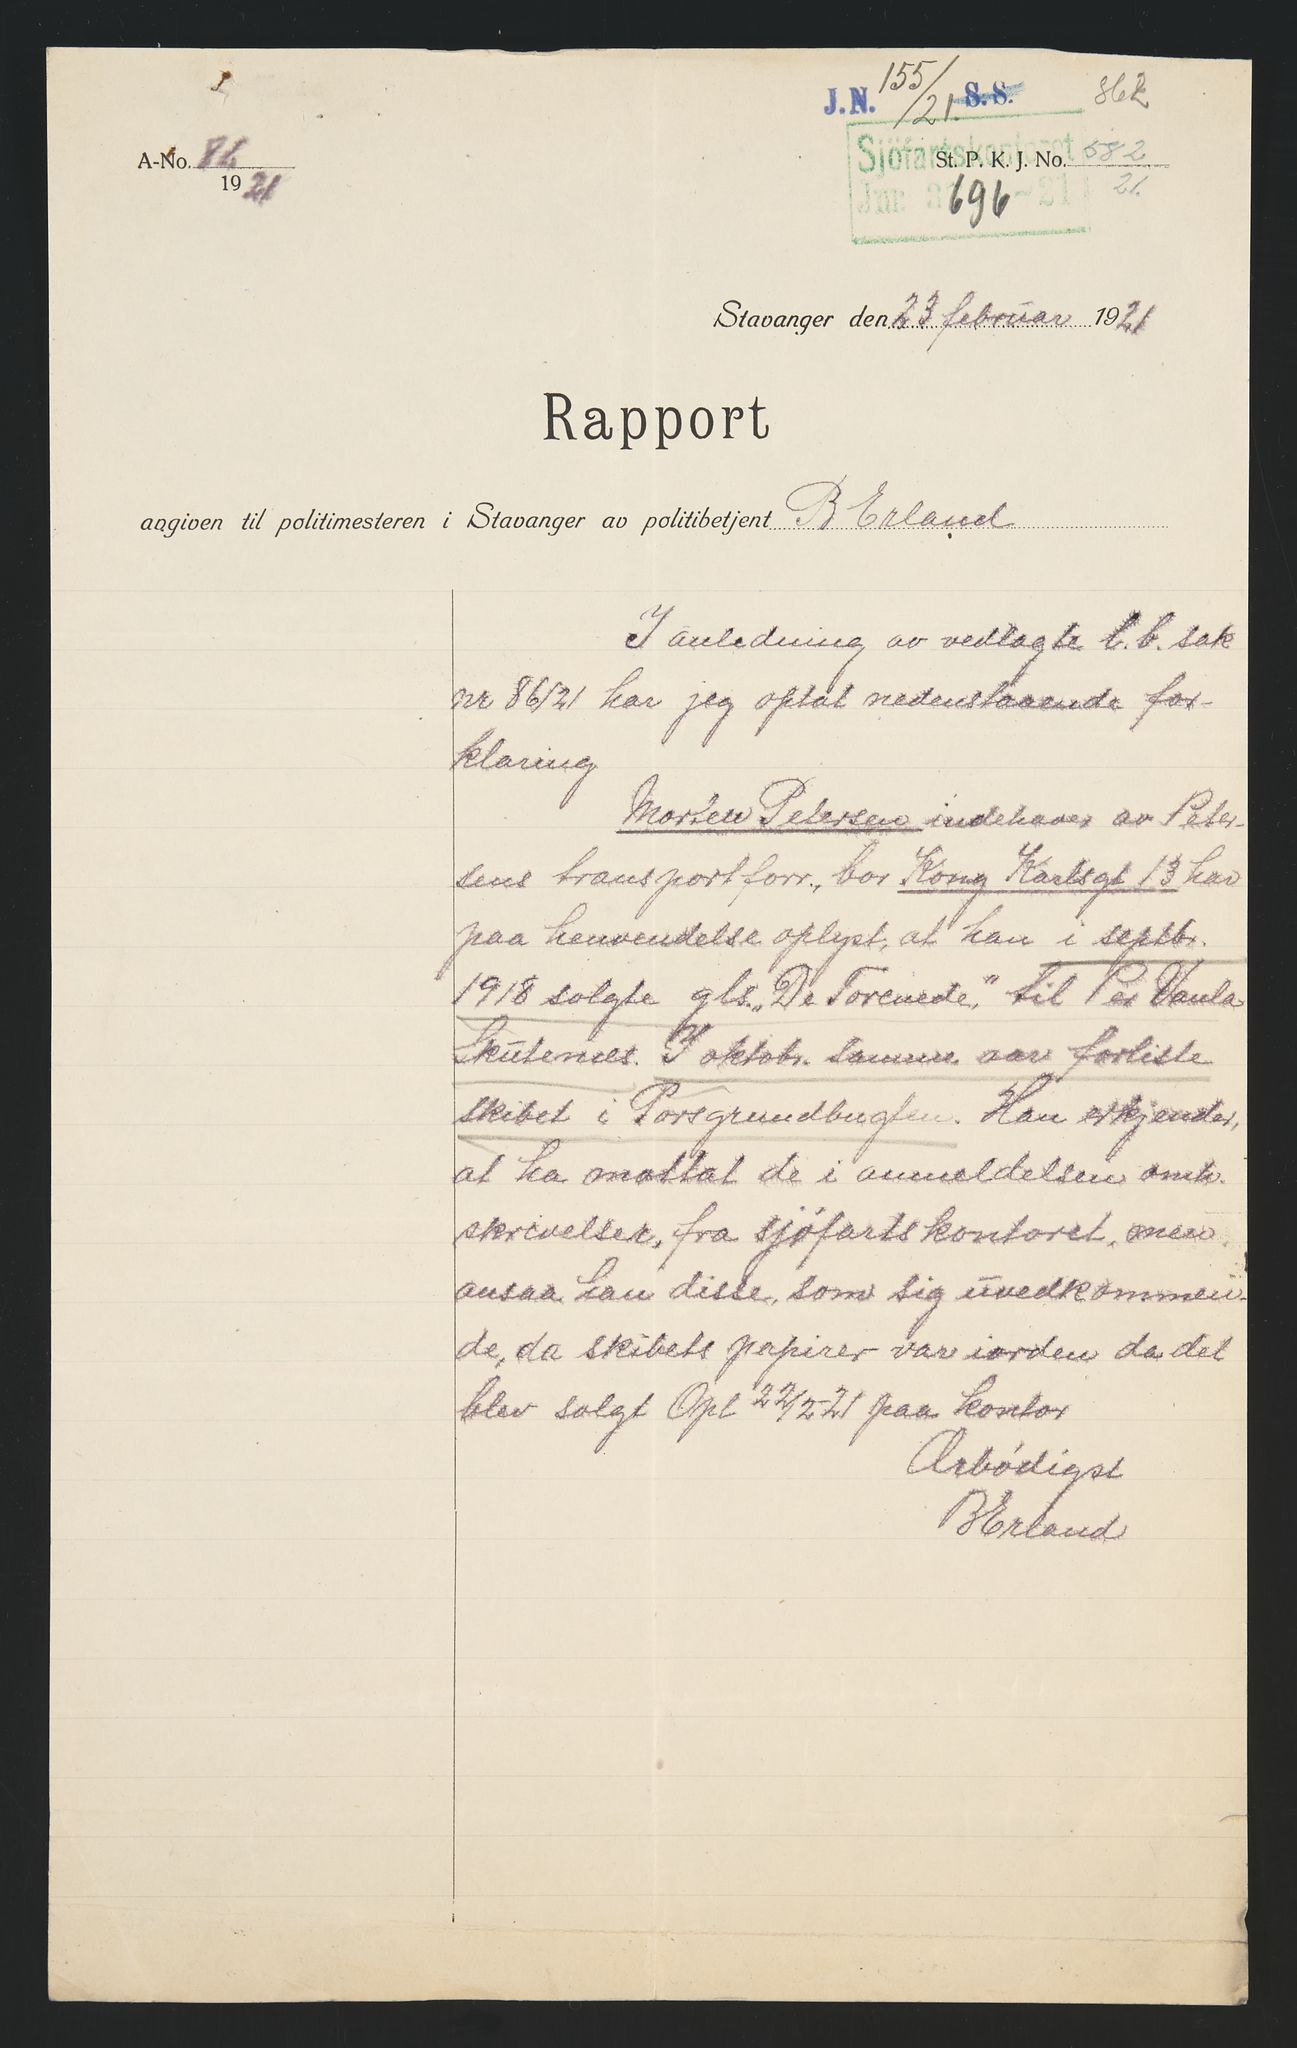 J.N. 155/21. S.S. 862
A-No. 86
1921
Sjöfartskontoret
St. P. K. J. No. 582
21.
Jnr. 696-21
Stavanger den 23 februar 1921
Rapport
angiven til politimesteren i Stavanger av politibetjent B Erland
I anledning av vedlagte l.b. sak
nr 86/21 har jeg optat nedenstaaende for-
klaring
Morten Petersen indehaver av Peter-
sens transportforr., bor Kong Karlsgt 13 har
paa henvendelse oplyst, at han i septbr.
1918 solgte gls. „De Forenede," til Per Vaula
Skutenes. I oktobr. samme aar forliste
skibet i Porsgrundbugten. Han erkjender,
at ha mottat de i anmeldelsen omh.
skrivelser, fra sjøfartskontoret, men
ansaa han disse, som sig uvedkommen-
de, da skibets papirer var iorden da det
blev solgt Opt 22/2-21 paa kontor
Ærbødigst
B Erland